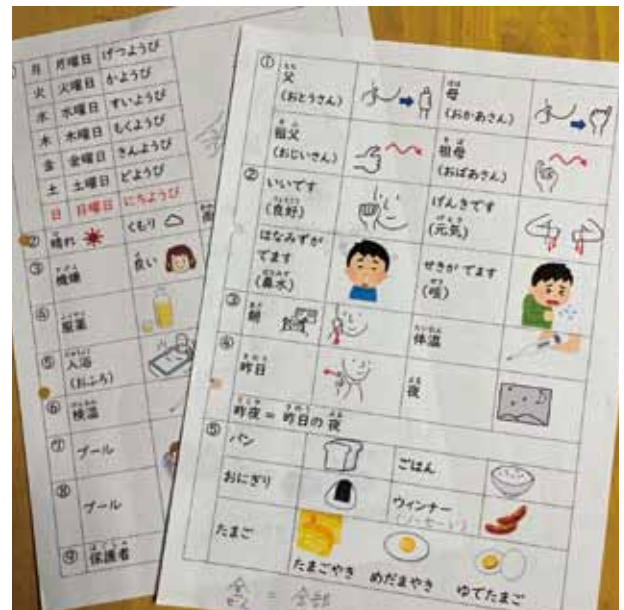 月 月曜日 げつようび
火 火曜日 かようび
水 水曜日 すいようび
木 木曜日 もくようび
金 金曜日 きんようび
土 土曜日 どようび
日 日曜日 にちようび
② 晴れ くもり
③ 機嫌 良い
④ 服薬
⑤ 入浴
(おふろ)
⑥ 検温
⑦ プール
⑧ プール
⑨ 保護者
① 父 母
(おとうさん) (おかあさん)
祖父 祖母
(おじいさん) (おばあさん)
② いいです げんきです
(良好) (元気)
はなみずが
でます せきが でます
(鼻水) (咳)
③ 朝 体温
④ 昨日 夜
昨夜 = 昨日の 夜
⑤ パン ごはん
おにぎり ウィンナー
(ソーセージ)
たまご
たまごやき めだまやき ゆでたまご
全 = 全部
ぜん